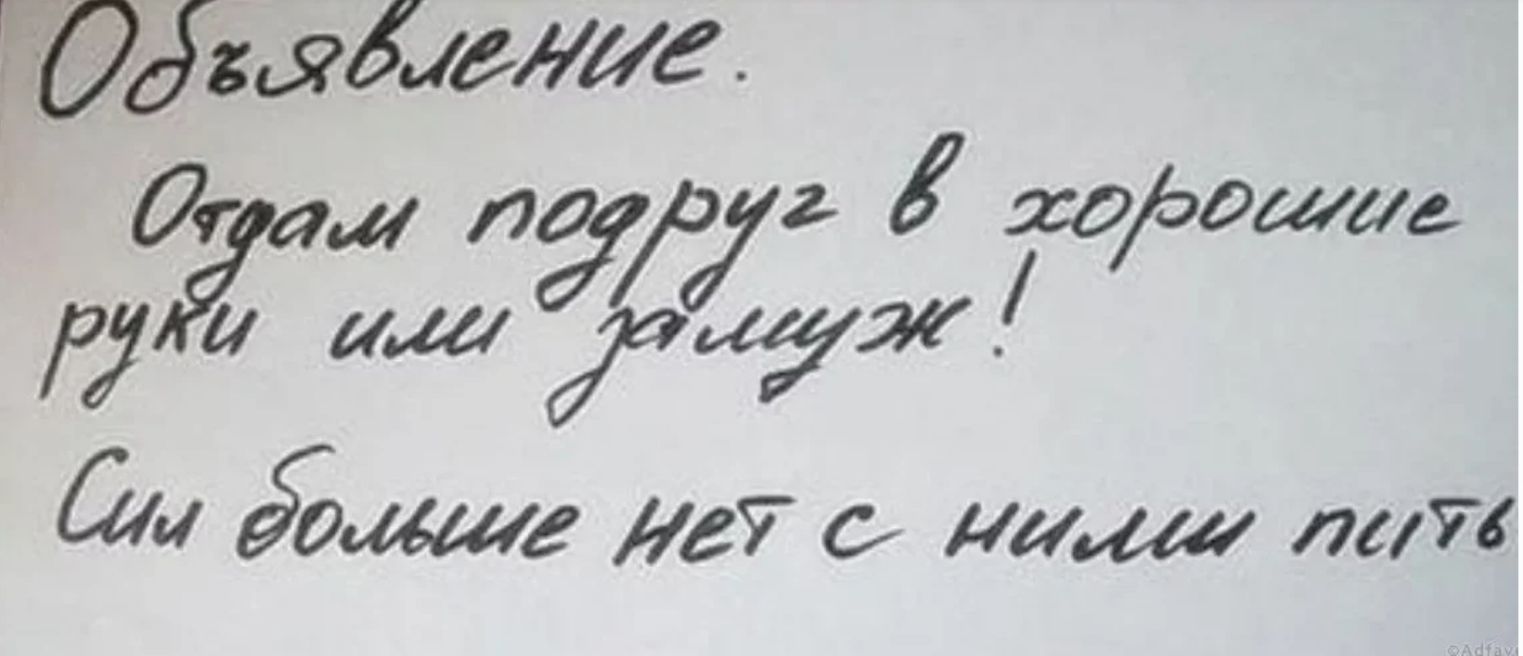 Объявление.
Отдам подруг в хорошие
руки или замуж!
Сил больше нет с ними пить